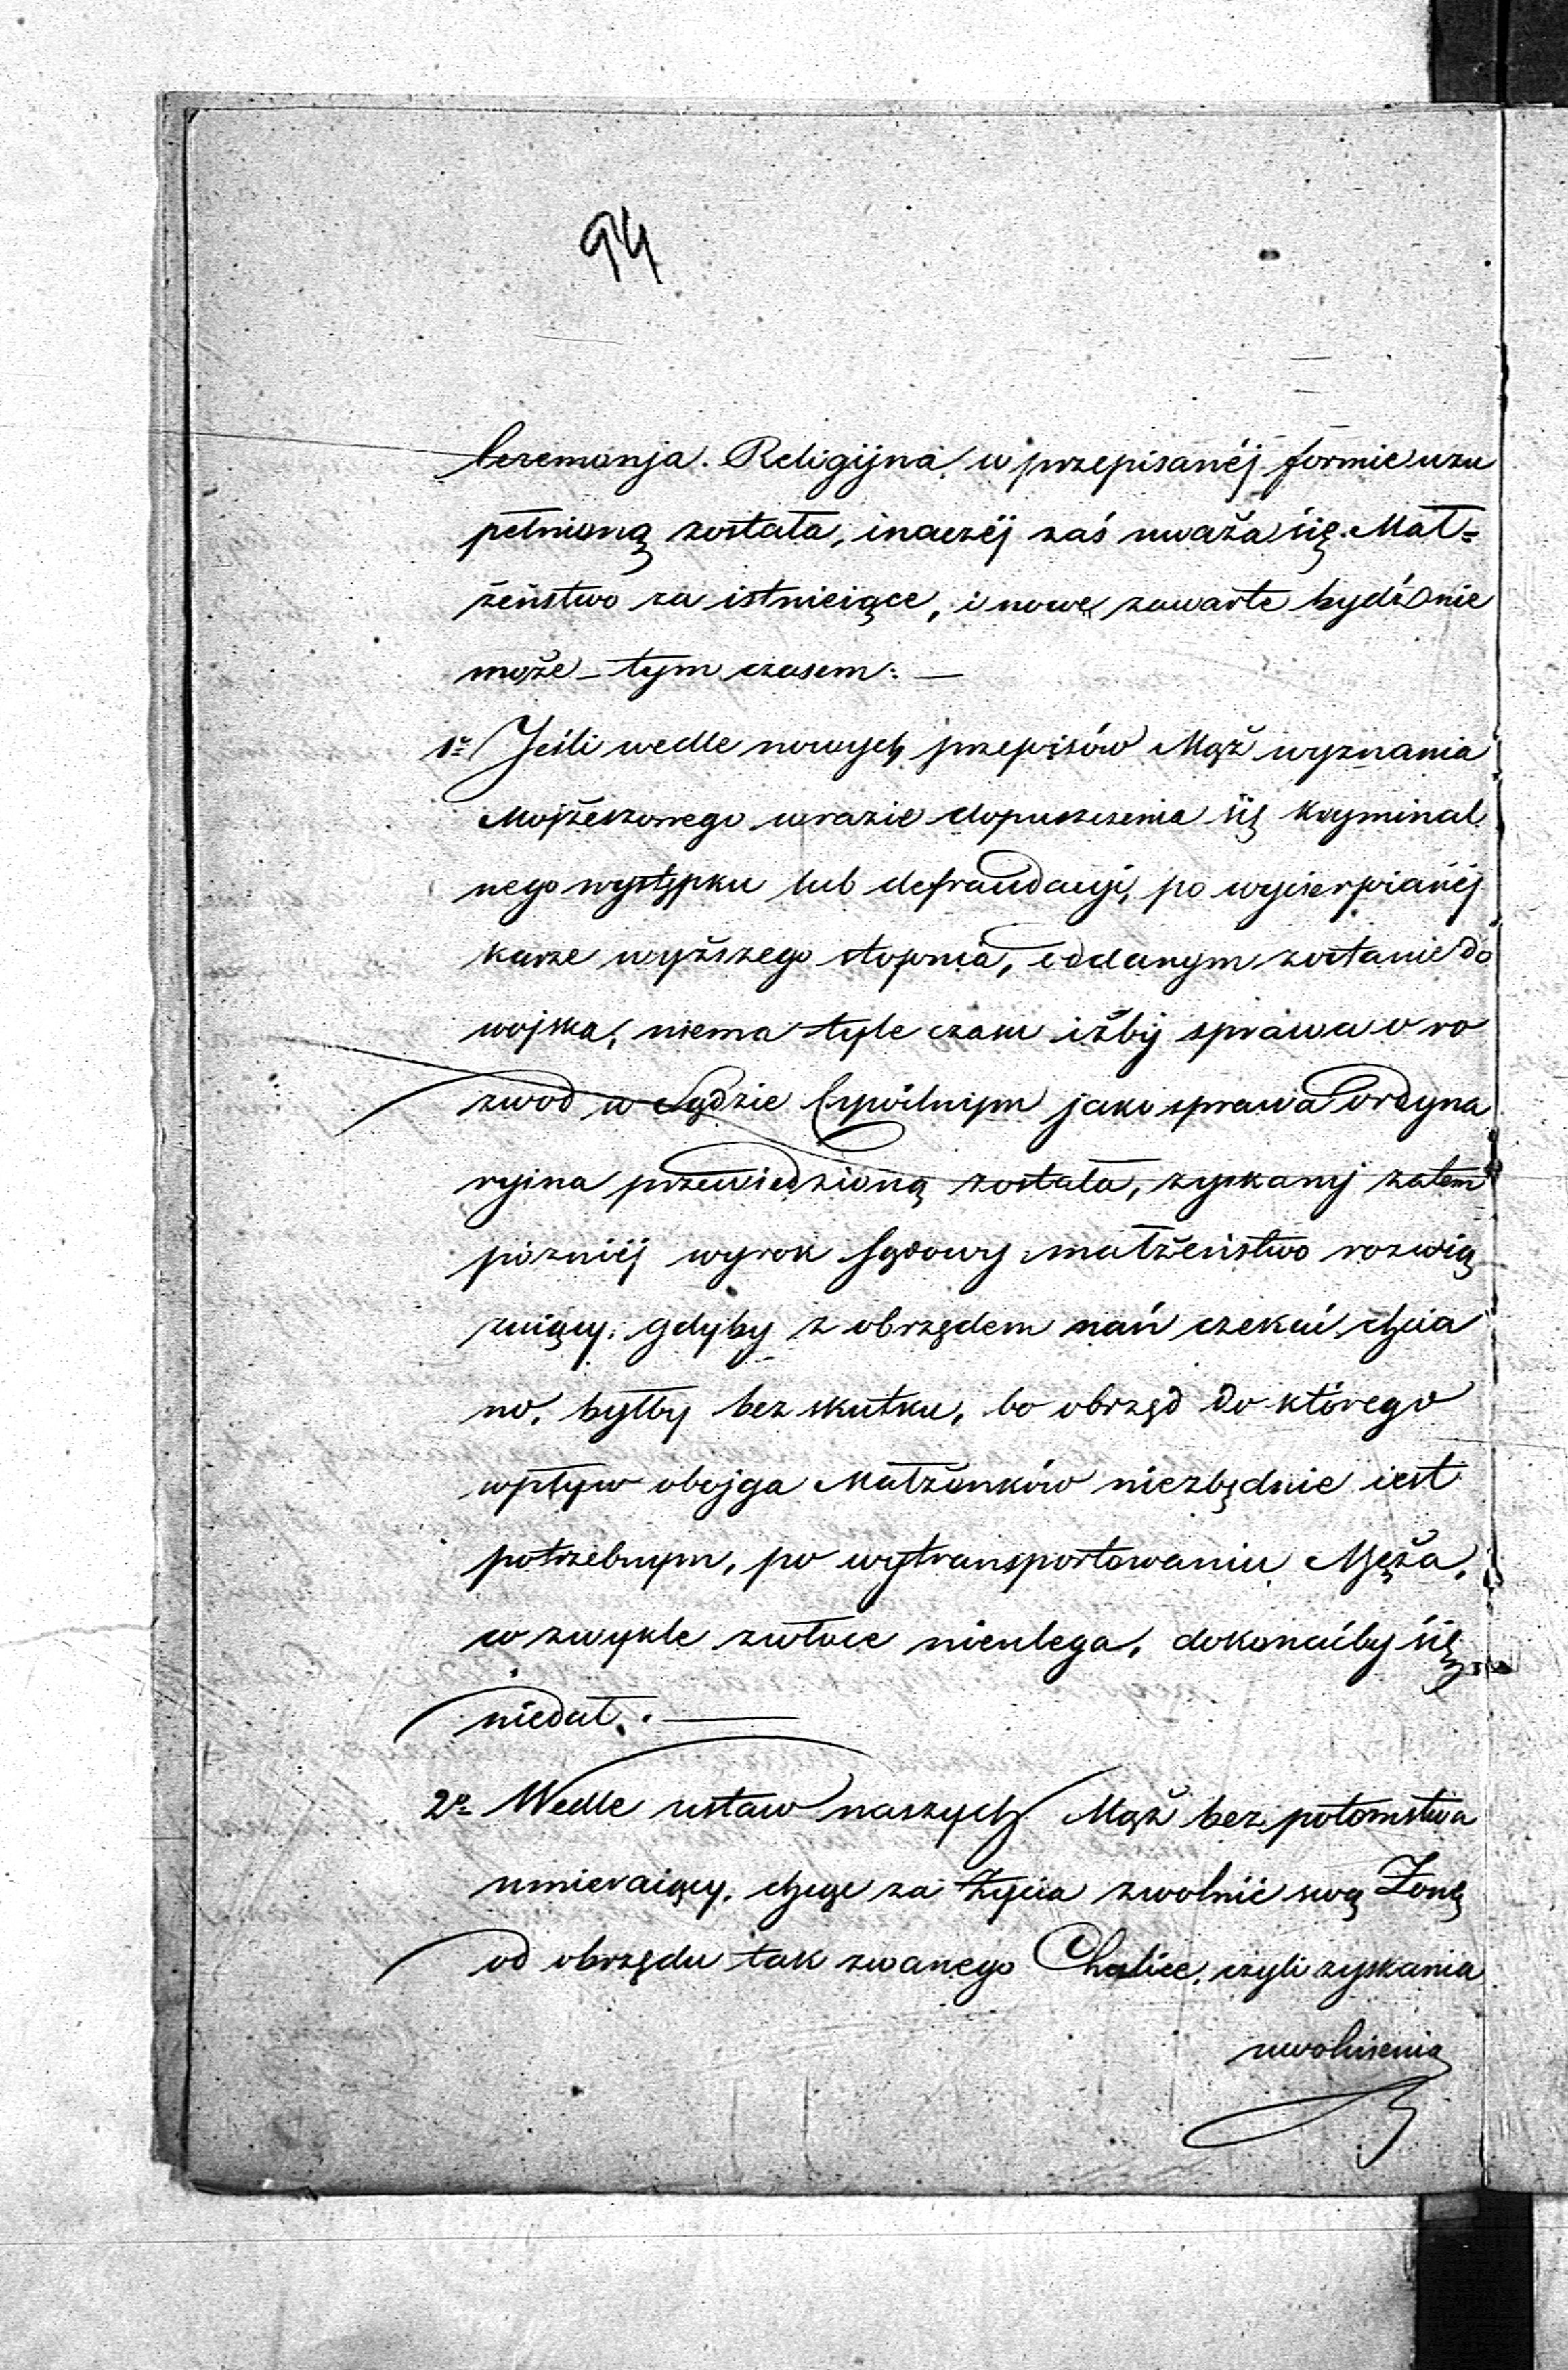 94
Ceremonja Religijna w przepisanéj formie uzu
pełnioną została, inaczéj zaś uważa się Mał=
żeństwo za istnieiące, i nowe zawarte bydź nie
może – tym czasem: —
1o Jeśli wedle nowych przepisów Mąż wyznania
Mojżeszowego w razie dopuszczenia się kryminal
nego występku lub defraudacyi, po wycierpianéj
karze wyższego stopnia, oddanym zostanie do
wojska, niema tyle czasu iżby sprawa o ro
zwod w Sądzie Cywilnym jako sprawa Ordyna
ryina przewiedzioną została, zyskany zatem
pózniéj wyrok Sądowy małżeństwo rozwią
zuiący, gdyby z obrzędem nań czekać chcia
no, byłby bez skutku, bo obrząd do którego
wpływ obojga Małżonków niezbędnie iest
potrzebnym, po wytransportowaniu Męża,
co zwykle zwłoce nieulega, dokonaćby się
niedał. —
2o Wedle ustaw naszych Mąż bez potomstwa
umieraiący, chcąc za życia zwolnić swą Żonę
od obrzędu tak zwanego Chalice, czyli zyskania
uwolnienia